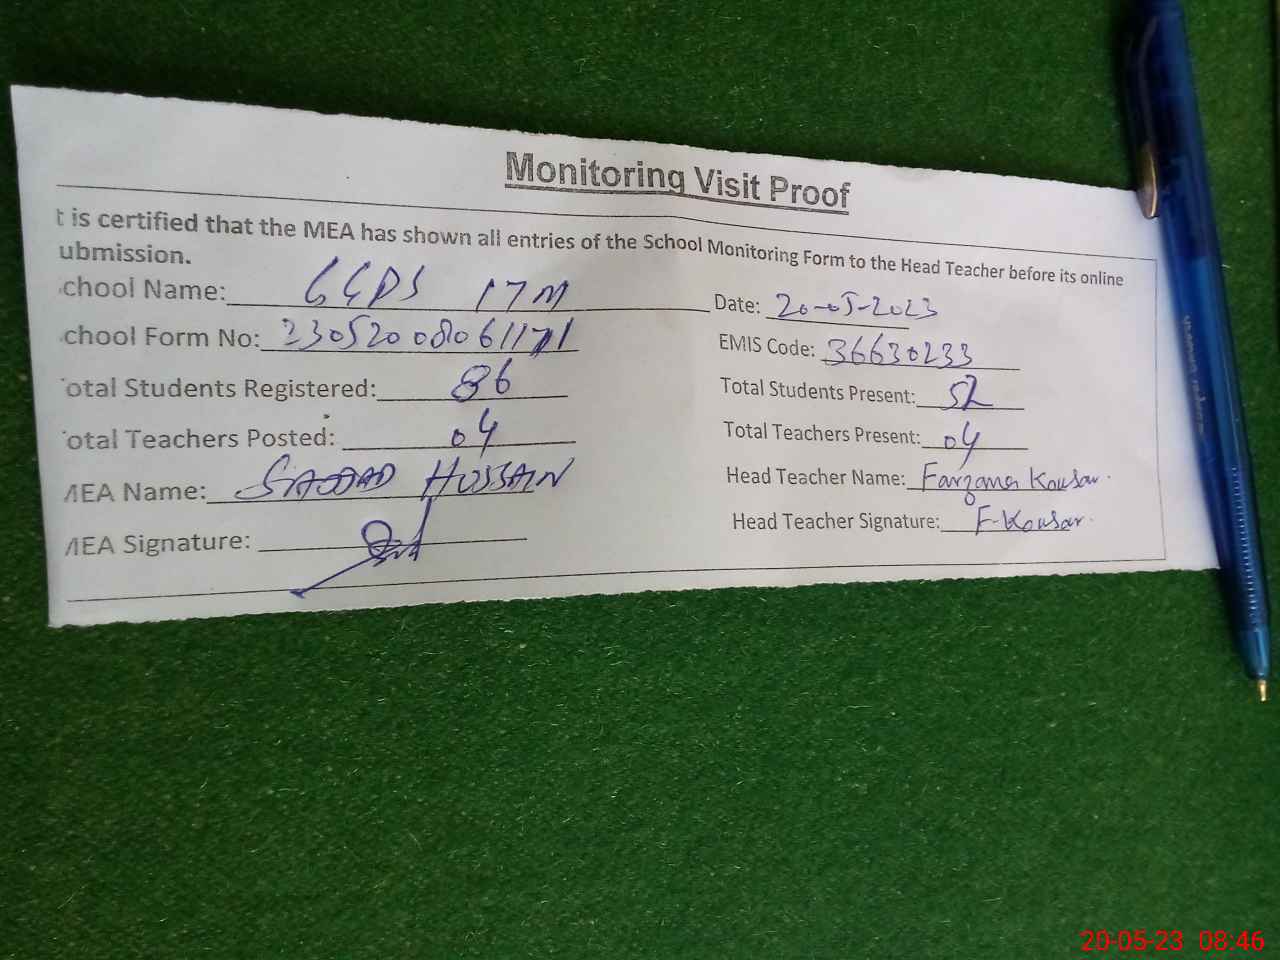 Monitoring Visit Proof
t is certified that the MEA has shown all entries of the School Monitoring Form to the Head Teacher before its online
ubmission.
chool Name: GGPS 17M Date: 20-05-2023
chool Form No: 23052008061171 EMIS Code: 36630233
otal Students Registered: 86 Total Students Present: 52
otal Teachers Posted: 04 Total Teachers Present: 04
MEA Name: SAJJAD HUSSAIN Head Teacher Name: Farzana Kousar.
MEA Signature: Head Teacher Signature: F-Kousar.
20-05-23 08:46